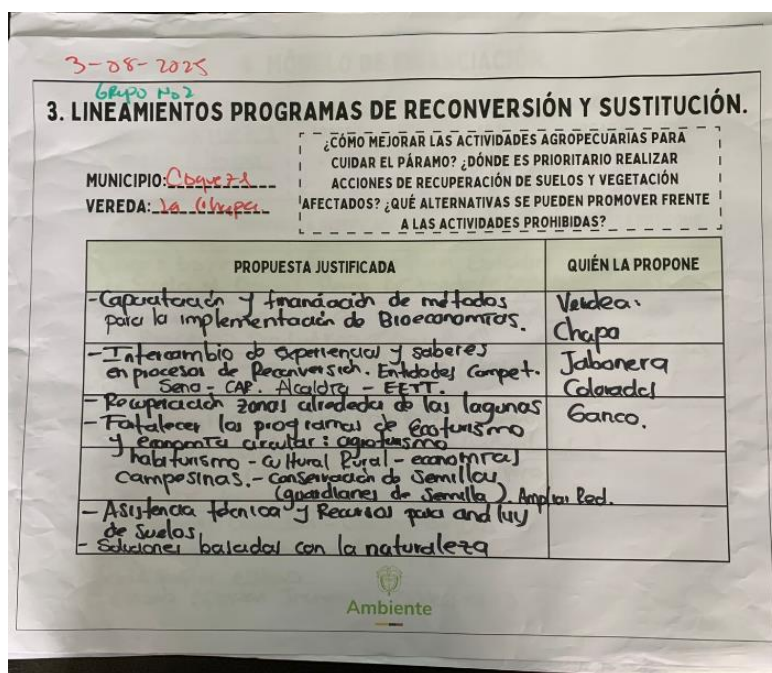 3-08-2025
Grupo No 2
3. LINEAMIENTOS PROGRAMAS DE RECONVERSIÓN Y SUSTITUCIÓN.
¿CÓMO MEJORAR LAS ACTIVIDADES AGROPECUARIAS PARA
CUIDAR EL PÁRAMO? ¿DÓNDE ES PRIORITARIO REALIZAR
ACCIONES DE RECUPERACIÓN DE SUELOS Y VEGETACIÓN
AFECTADOS? ¿QUÉ ALTERNATIVAS SE PUEDEN PROMOVER FRENTE
A LAS ACTIVIDADES PROHIBIDAS?
MUNICIPIO:
VEREDA: La Chapa
PROPUESTA JUSTIFICADA
QUIÉN LA PROPONE
-Capacitación y financiación de métodos
para la implementación de Bioeconomías.
- Intercambio de experiencias y saberes
en procesos de Reconversión. Entidades Compet.
Sena - CAR. Alcaldía - EETT.
- Recuperación zonas alrededor de las lagunas
- Fortalecer los programas de Ecoturismo
y economía circular: agroturismo
- cultural Rural - economías
campesinas. - conservación de semillas
(guardianes de semilla). Ampliar Red.
- Asistencia técnica y Recursos para
de suelos
- Soluciones basadas con la naturaleza
Vereda:
Chapa
Jabonera
Colorados
Ganco.
Ambiente